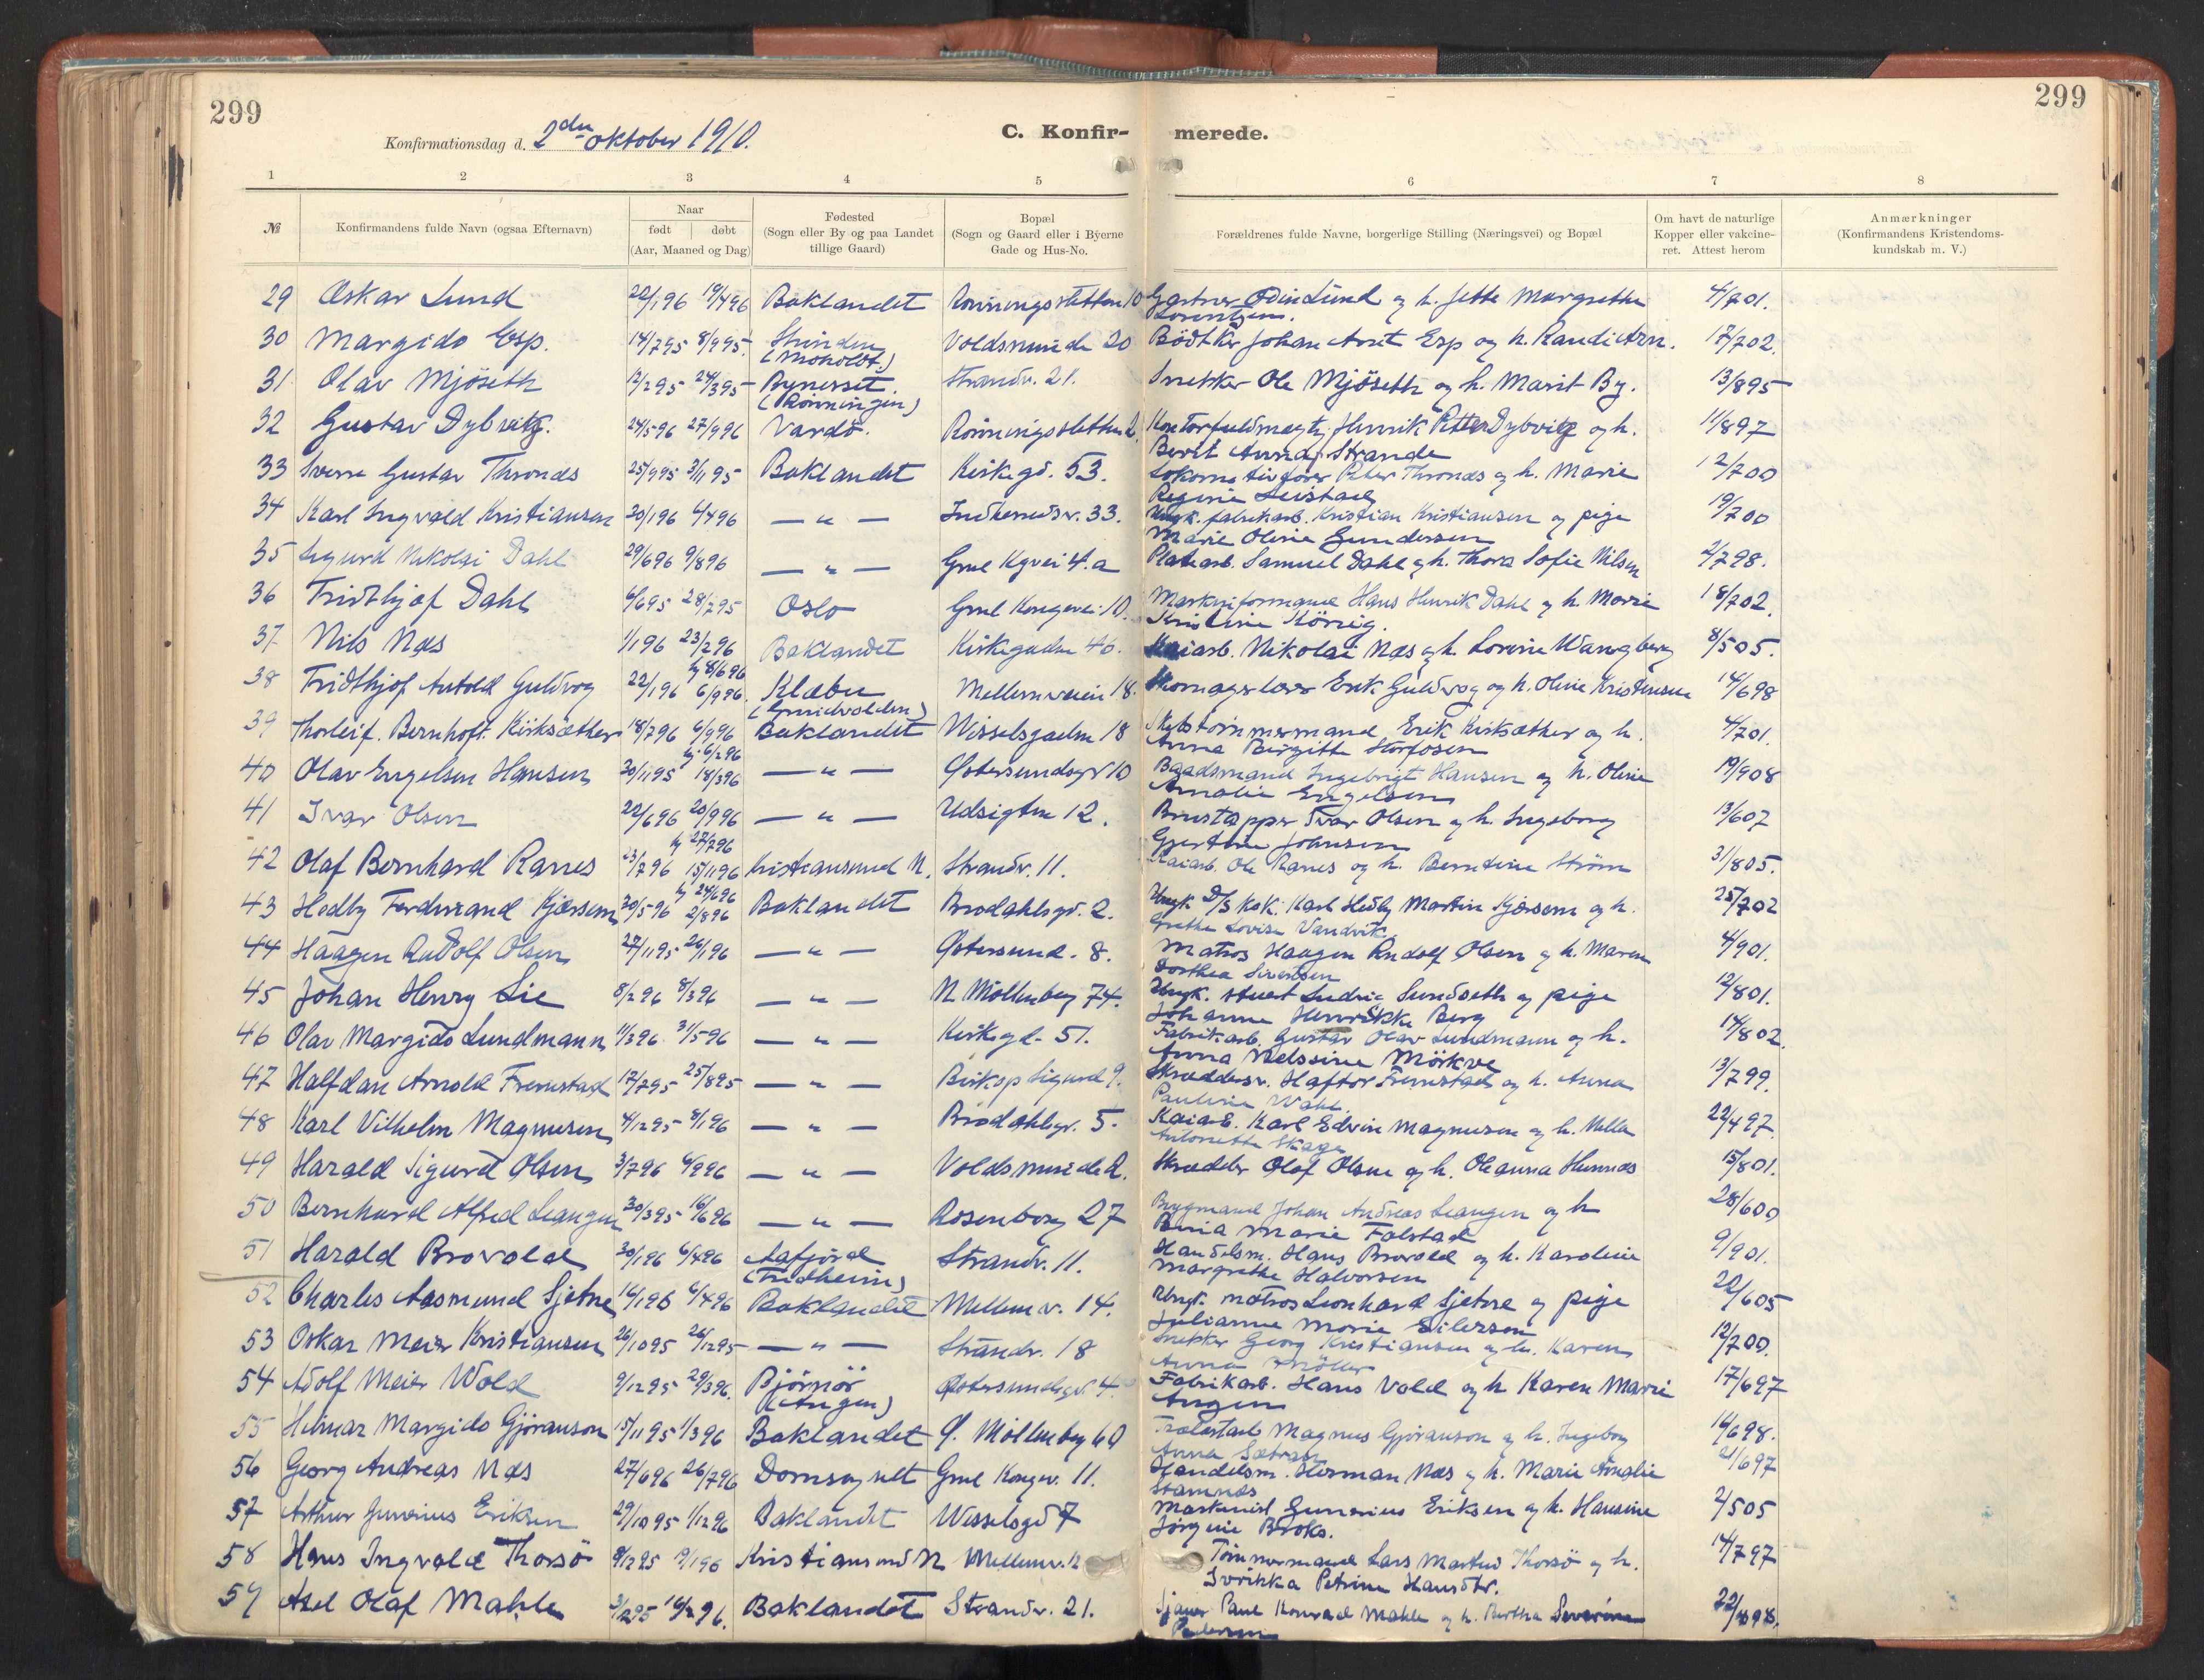 299
299
Konfirmationsdag d. 2den oktober 1910.
C. Konfir-
merede.
1 2 3 4 5 6 7 8
№
Konfirmandens fulde Navn (ogsaa Efternavn)
Naar
født døbt
(Aar, Maaned og Dag)
Fødested
(Sogn eller By og paa Landet
tillige Gaard)
Bopæl
(Sogn og Gaard eller i Byerne
Gade og Hus-No.
Forældrenes fulde Navne, borgerlige Stilling (Næringsvei) og Bopæl
Om havt de naturlige
Kopper eller vakcine-
ret. Attest herom
Anmærkninger
(Konfirmandens Kristendoms-
kundskab m. V.)
29 Oskar Lund 22/1 96 19/4 96 Baklandet Rønningsletten 10 Gartner Odin Lund og h. Jette Margrethe 4/7 01.
Lorentzen.
30 Margido Esp. 14/7 95 8/9 95 Strinden Voldsminde 20 Bødtker Johan Arnt Esp og h. Randi Arn. 17/7 02.
(Moholdt.)
31 Olav Mjøseth 12/2 95 24/3 95 Bynesset. Strandv. 21. Snekker Ole Mjøseth og h. Marit By. 13/8 95
(Rønningen)
32 Gustav Dybvig. 24/5 96 27/9 96 Vardø. Rønningsletten 2. Kontorfuldmægtig Henrik Petter Dybvig og h. 11/8 97
Berit Anna Strande
33 Sverre Gustav Thronæs 25/9 95 3/11 95 Baklandet Kirkegd. 53. Lokomotivfører Peter Thronæs og h. Marie 12/7 00
Regine Leistad
34 Karl Ingvald Kristiansen 20/1 96 4/4 96 — " — Indherredsv. 33. Ungk. fabrikarb. Kristian Kristiansen og pige 19/7 00
Marie Oline Gundersen
35 Sigurd Nikolai Dahl 29/6 96 9/8 96 — " — Gml Kgvei 4.a Platearb. Samuel Dahl og h. Thora Sofie Nilsen 2/7 98.
36 Fridthjof Dahl 6/6 95 28/7 95 Oslo Gml Kongevei 10. Maskinformand Hans Henrik Dahl og h. Marie 18/7 02.
Kristine König.
37 Nils Næs 1/1 96 23/2 96 Baklandet Kirkegaden 46. Kaiarb. Nikolai Næs og h. Lorine Wangberg 8/5 05.
38 Fridthjof Antold Guldvog 22/1 96 hj 8/6 96 6/9 96. Klæbu Mellemveien 18. Skomager Erik Guldvog og h. Oline Kristensen 14/6 98
39 Thorleif. Bernhoft. Kirksæther 18/7 96 6/9 96 Baklandet Wisselsgaden 18 Skibstømmermand Erik Kirksæther og h. 4/7 01.
Anna Birgitte Storfosen
40 Olav Engelsen Hansen 20/11 95 hj. 6/2 96 18/3 96 — " — Østersundsgt 10 Baadsmand Ingebrigt Hansen og h. Oline 19/9 08
Amalie Engelsen
41 Ivar Olsen 22/6 96 20/9 96 — " — Udsigten 12. Brustapper Ivar Olsen og h. Ingeborg 13/6 07
Gjertine Johansen
42 Olaf Bernhard Ranes 23/7 96 hj 27/7 96 15/11 96 Kristiansund N. Strandv. 11. Kaiarb. Ole Ranes og h. Berntine Strøm 31/8 05.
43 Hedly Ferdinand Kjørsem 20/5 96 hj 24/6 96 2/8 96 Baklandet Brodahlsgd. 2. Ungk D/S kok. Karl Hedly Martin Kjørsem og h. 25/7 02
Grethe Lovise Vandvik.
44 Haagen Rudolf Olsen 27/11 95 26/1 96 — " — Østersund. 8. Matros Haagen Rudolf Olsen og h. Maren 4/9 01.
Dorthea Sivertsen
45 Johan Henry Lie 8/2 96 8/3 96 — " — N Møllenberg 74. Ungk. stuert Ludvig Sundseth og pige 12/8 01.
Johanne Henrikke Berg
46 Olav Margido Lundmann 11/3 96 31/5 96 — " — Kirkegd. 51. Fabrikarb. Gustav Olav Lundmann og h. 14/8 02.
Anna Nelssine Mørkve
47 Halfdan Arnold Fremstad 17/7 95 25/8 95 — " — Biskop Sigurd 9. Skræddersv. Haftor Fremstad og h. Anna 13/7 99.
Pauline Wahl.
48 Karl Vilhelm Magnusen 4/12 95 8/1 96 — " — Brodahlsgt. 5. Kaiarb. Karl Edvin Magnusen og h. Milla 22/4 97.
Antonette Skage
49 Harald Sigurd Olsen 3/7 96 6/9 96 — " — Voldsminde 2. Skrædder Olaf Olsen og h. Oleanna Hunnæs 15/8 01.
50 Bernhard Alfred Leangen 30/3 95 16/6 96 — " — Rosenborg 27 Brygmand Johan Andreas Leangen og h 28/6 00
Marie Falstad
51 Harald Brovold 30/1 96 6/4 96 Aafjord Strandv. 11. Handelsm. Hans Brovold og h. Karoline 9/9 01.
(Fridheim) Margrethe Halvorsen
52 Charles Aasmund Sjetne 16/1 96 6/4 96 Baklandet Mellemv. 14. Ungk. matros Leonhard Sjetne og pige 20/6 05
Julianne Marie Eilersen
53 Oskar Meier Kristiansen 26/10 95 26/12 95 — " — Strandv. 18 Snekker Georg Kristiansen og h. Karen 12/7 00.
Anna Møller
54 Adolf Meier Wold 9/12 95 29/3 96. Bjørnør Østersundsgd. 4. Fabrikarb. Hans Vold og h Karen Marie 17/6 97
(Angen) Angen
55 Helmar Margido Gjøranson 15/11 95 1/3 96 Baklandet Ø. Møllenberg 60 Magnus Gjøranson og h. Ingeborg 16/6 98.
Anna Sætran
56 Georg Andreas Næs 27/6 96 26/7 96 Domsognet Gml Kongev. 11. Handelsm. Herman Næs og h. Marie Amalie 21/6 97
Stamnæs
57 Arthur Gunerius Eriksen 29/10 95 1/12 96 Baklandet Wisselsgd 7 Maskinist Gunerius Eriksen og h. Hansine 2/5 05
Jørgine Broks.
58 Hans Ingvald Thorsø 8/12 95 19/1 96 Kristiansund N Mellemv. 12 Tømmermand Lars Martin Thorsø og h. 14/7 97
Ivrikka Petrine Hansdtr.
59 Axel Olaf Mahle 3/12 95 16/2 96. Baklandet Strandv. 21. Sjauer Paul Konrad Mahle og h. Berthe Severine 22/6 98.
Pedersen